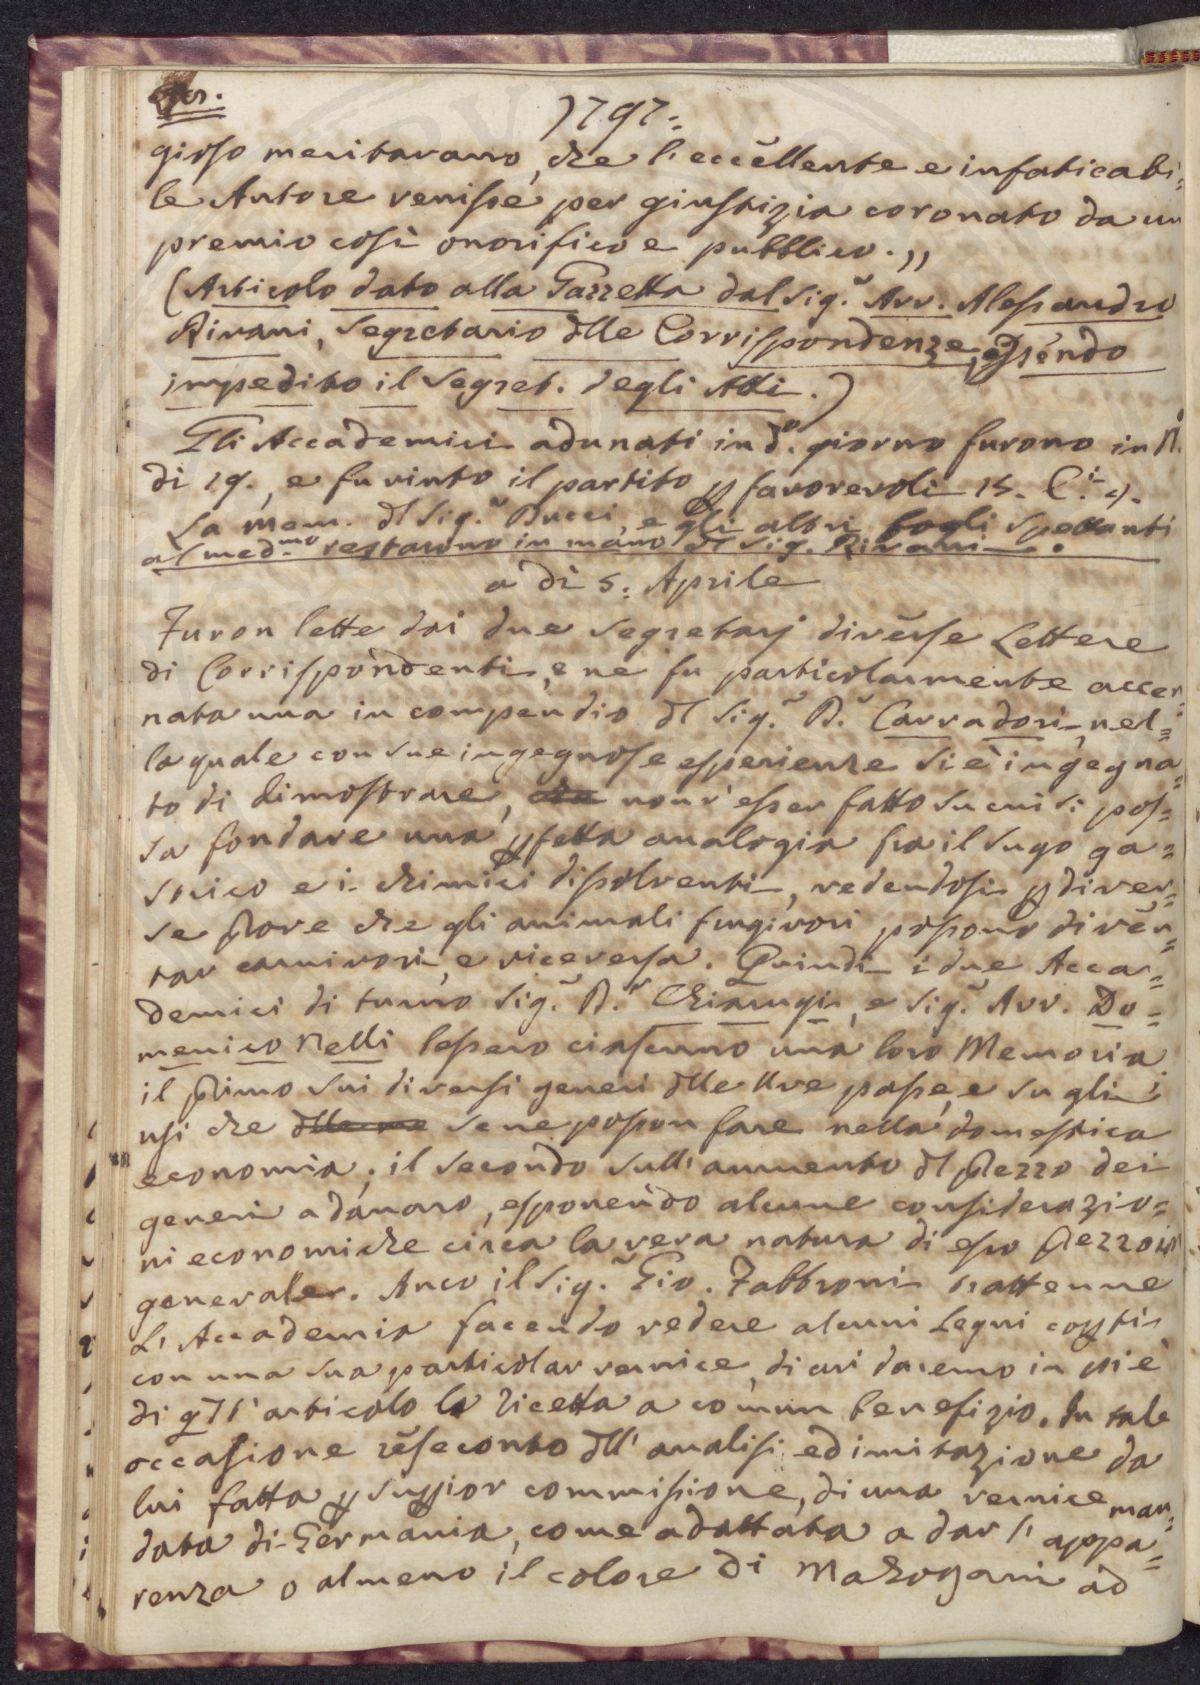 1797.
gioso meritavano, che l'eccellente e infaticabi=
le Autore venisse per giustizia coronato da un
premio così onorifico e pubblico.,,
(Articolo dato alla Gazzetta dal Sig.r Avv. Alessandro
Rivani, Segretario dlle Corrispondenze, essendo
impedito il Segret. degli Atti.)
Gli Accademici adunati in do. giorno furono in N.o
di 19., e fu vinto il partito p favorevoli 15. C.i 4.
La mem. dl Sig.r Bucci, e gli altri fogli spettanti
al med.mo restarono in mano dl Sig. Rivani.
a dì 5: Aprile
Furon lette dai due Segretarj diverse Lettere
di Corrispondenti, e ne fu particolarmente accen=
nata una in compendio dl Sig.r D.r Carradori, nel=
la quale con sue ingegnose esperienze si è ingegna=
to di dimostrare, che non v'esser fatto su cui si pos=
sa fondare una pfetta analogia fra il sugo ga=
strico e i chimici dissolventi, vedendosi p diver=
se prove che gli animali frugivori possono diven=
tar carnivori, e viceversa. Quindi i due Acca=
demici di turno Sig.r D.r Chiarugi, e Sig.r Avv. Do=
menico Nelli lessero ciascuno una loro Memoria;
il primo sui diversi generi dlle Uve passe, e su gli
usi che dlle se ne posson fare nella domestica
economia; il secondo sull'aumento dl prezzo dei
generi a danaro, esponendo alcune considerazio=
ni economiche circa la vera natura di esso prezzo in
generale. Anco il Sig.r Gio. Fabbroni trattenne
L'Accademia facendo vedere alcuni Legni copti
con una sua particolar vernice, di cui daremo in piè
di qst'articolo la ricetta a comun benefizio. In tale
occasione rese conto dll'analisi ed imitazione da
lui fatta p suppior commissione, di una vernice man=
data di Germania, come adattata a dar l'appa=
renza o almeno il colore di Mahogani ad